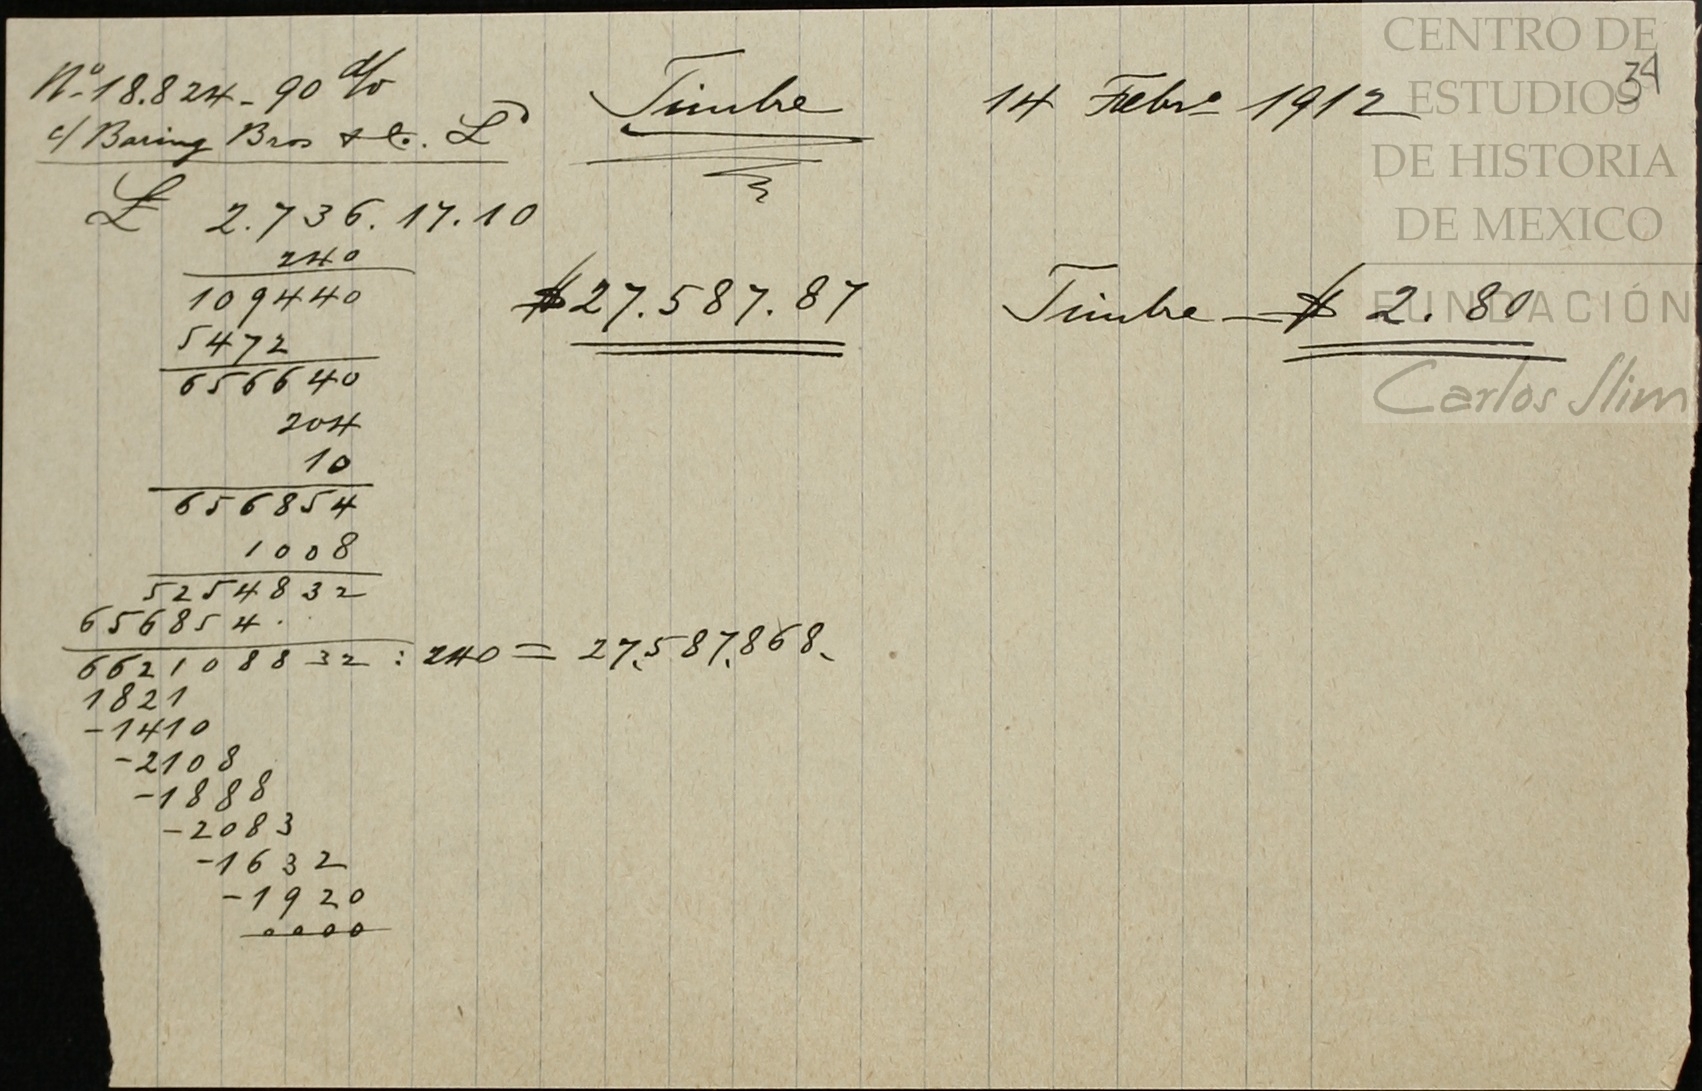 Nº 18.824 - 90 d/v
c/ Baring Bros & Co. Ld
Timbre
14 Febrº 1912
34
£ 2.736.17.10
240
109440
5472
656640
204
10
656854
1008
5254832
656854..
662108832 : 240 = 27,587,868.
1821
-1410
-2108
-1888
-2083
-1632
-1920
0000
$27.587.87
Timbre - $ 2.80
CENTRO DE
ESTUDIOS
DE HISTORIA
DE MEXICO
FUNDACIÓN
Carlos Slim